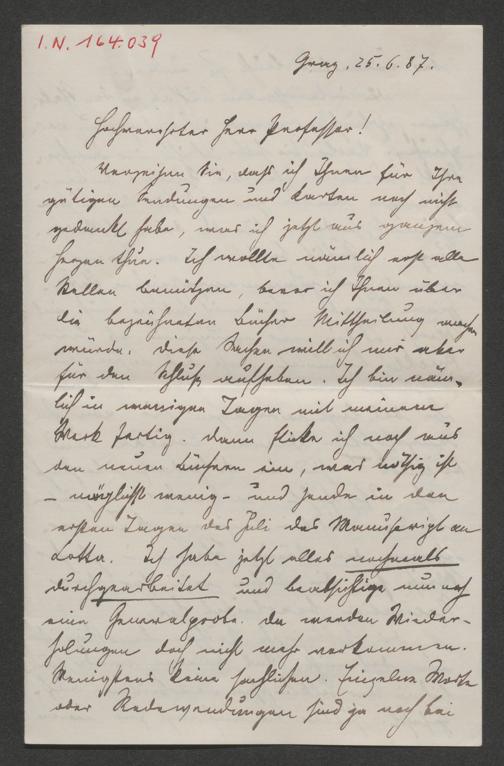 I.N. 164.039
Graz, 25.6.87.
Hochverehrter Herr Professor!
Verzeihen Sie, daß ich Ihnen für Ihre
gütigen Sendungen und Karten noch nicht
gedankt habe, was ich jetzt aus ganzem
Herzen thue. Ich wollte nämlich erst alle
Stellen benützen, bevor ich Ihnen über
die bezeichneten Bücher Mittheilung machen
würde. Diese Sachen will ich mir aber
für den Schluß aufheben. Ich bin näm-
lich in wenigen Tagen mit meinem
Werk fertig. Dann flicke ich noch aus
den neuen Büchern ein, was nöthig ist
- möglichst wenig - und sende in den
ersten Tagen des Juli das Manuscript an
Cotta. Ich habe jetzt alles nochmals
durchgearbeitet und beabsichtige nun noch
eine Generalprobe. Da werden Wieder-
holungen doch nicht mehr vorkommen.
Wenigstens keine sachlichen. Einzelne Worte
oder Redewendungen sind ja noch bei